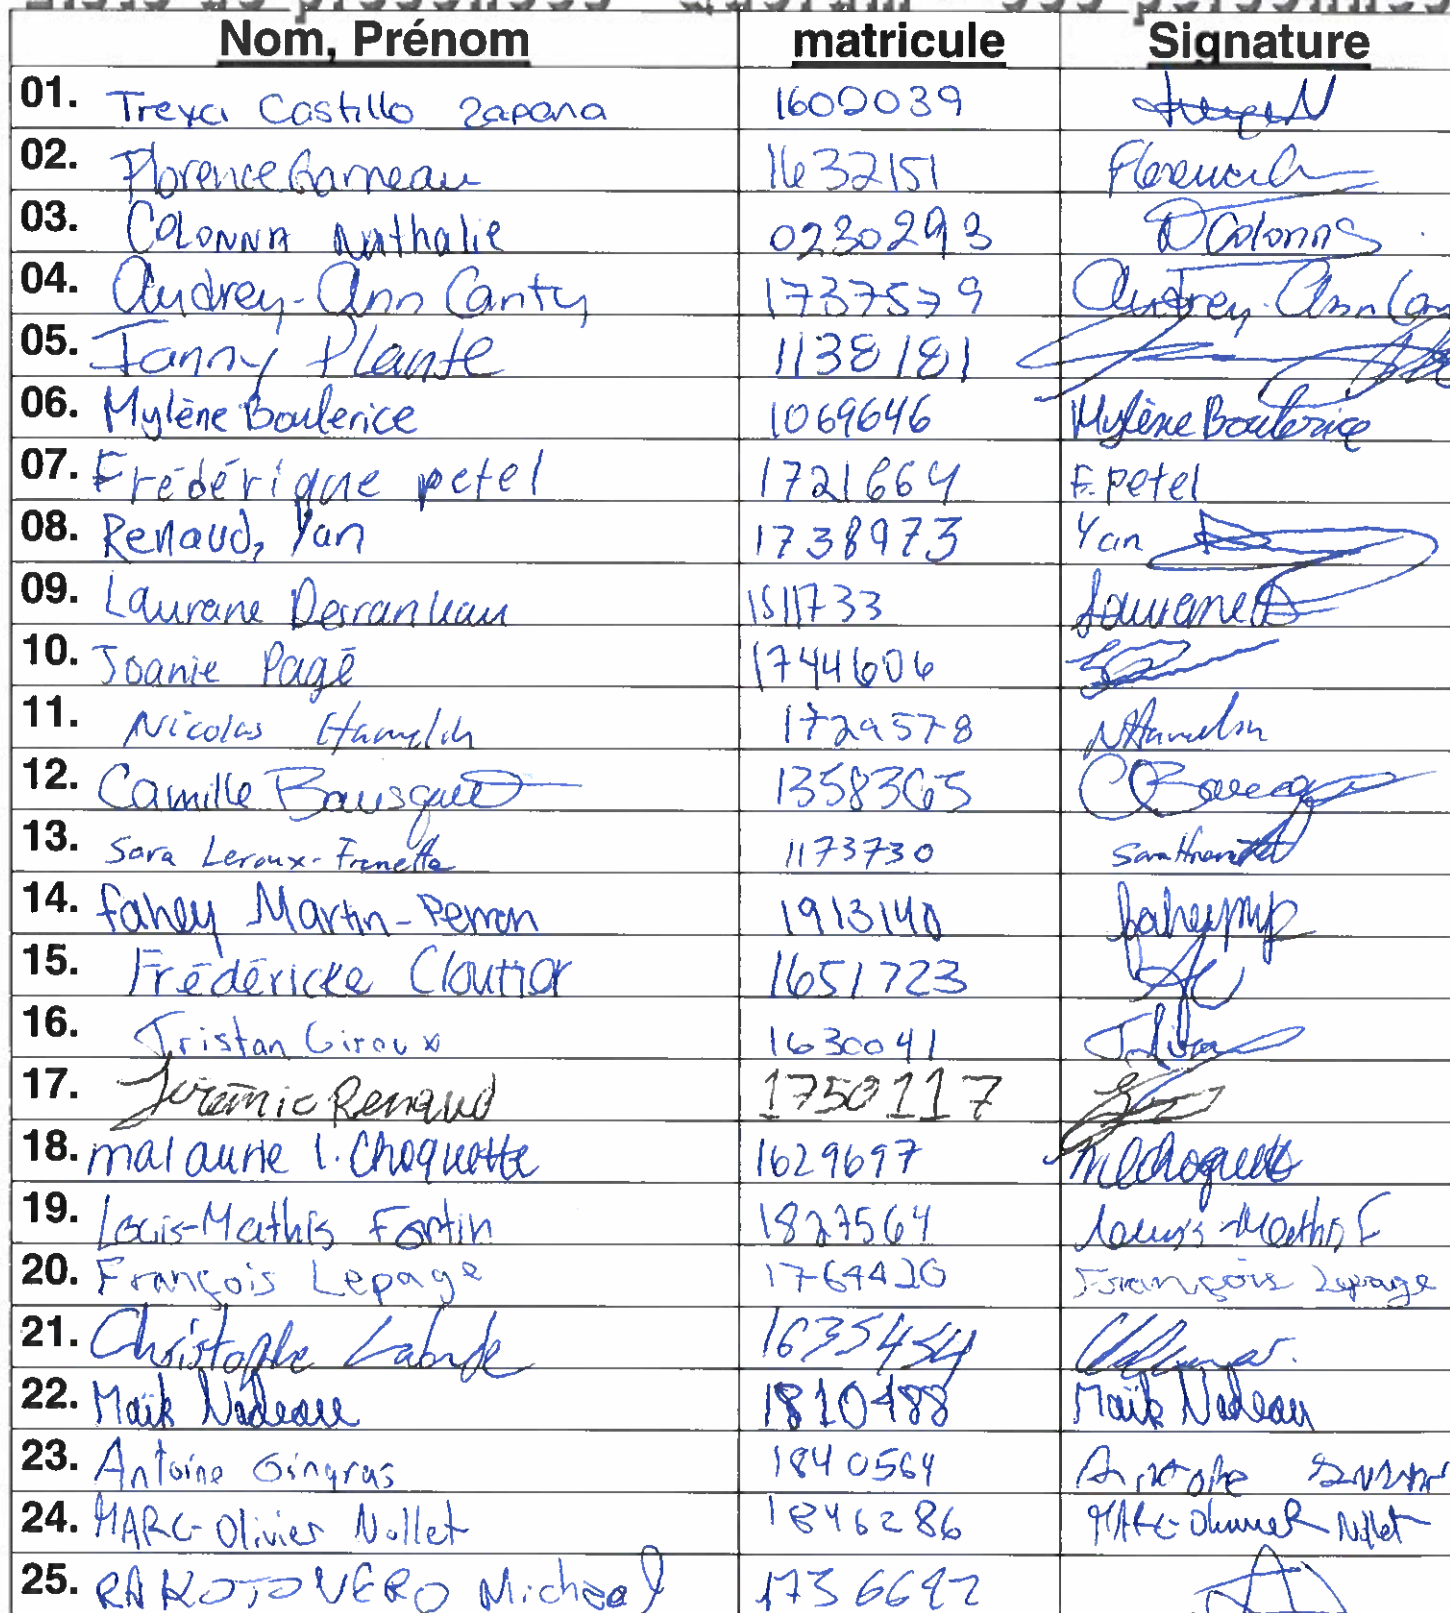 Liste de présences Quorum personnes
Nom, Prénom matricule Signature
01. Treyci Castillo Zapana 1602039
02. Florence Garneau 1632151
03. COLONNA Nathalie 0230293 Colonna
04. Audrey-Ann Canty 1737579 Audrey-Ann Can
05. Fanny Plante 1138181
06. Mylène Boulerice 1069646 Mylène Boulerice
07. Frédérique petel 1721664 F. petel
08. Renaud, Yan 1738973 Yan
09. Laurane Desranleau 1511733 Laurane D
10. Joanie Pagé 1744606
11. Nicolas Hamelin 1729578 N Hamelin
12. Camille Bousquet 1358365
13. Sara Leroux-Frenette 1173730
14. fahey Martin-Perron 1913140 faheymp
15. Frédéricke Cloutier 1651723 FC
16. Tristan Giroux 1630041
17. Jérémie Renaud 1750117
18. malaurie l. Choquette 1629697 mlchoquette
19. Louis-Mathis Fortin 1827564 Louis-Mathis F
20. François Lepage 1764420 François Lepage
21. Christophe 1635454
22. Maïk Nadeau 1810488 Maïk Nadeau
23. Antoine Gingras 1840564
24. MARC-Olivier Nollet 1846286 MARC-Olivier Nollet
25. RAKOTOVERO Michael 1736692